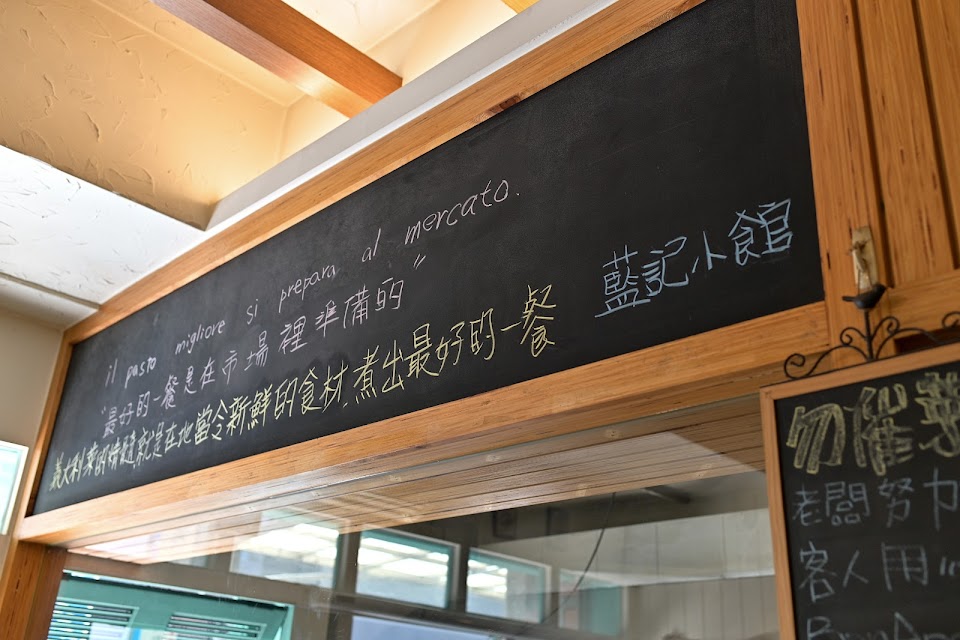 il pasto migliore si prepara al mercato.
"最好的一餐是在市場裡準備的"
義大利菜的精髓就是在地當令新鮮的食材.煮出最好的一餐
藍記小館
勿催
老闆努力
客人用